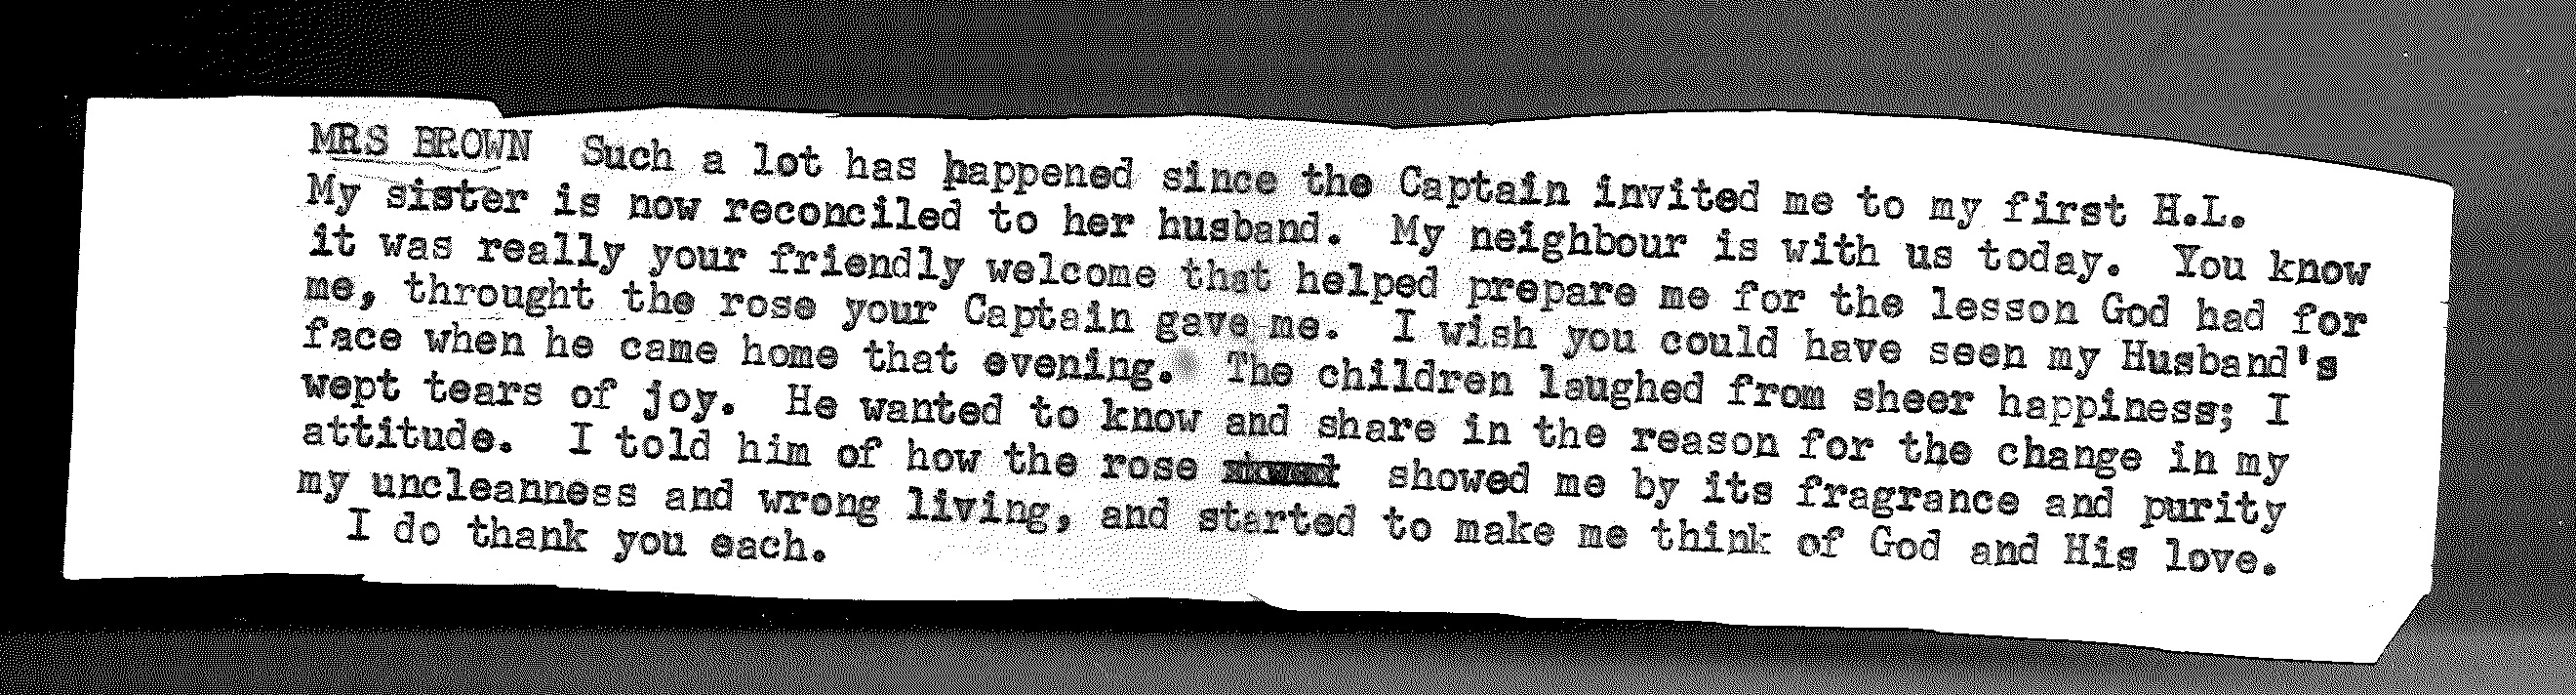 MRS BROWN  Such a lot has happened since the Captain invited me to my first H.L.
My sister is now reconciled to her husband.  My neighbour is with us today.  You know
it was really your friendly welcome that helped prepare me for the lesson God had for
me, throught the rose your Captain gave me.  I wish you could have seen my Husband's
face when he came home that evening.  The children laughed from sheer happiness; I
wept tears of joy.  He wanted to know and share in the reason for the change in my
attitude.  I told him of how the rose showed me by its fragrance and purity
my uncleanness and wrong living, and started to make me think of God and His love.
I do thank you each.